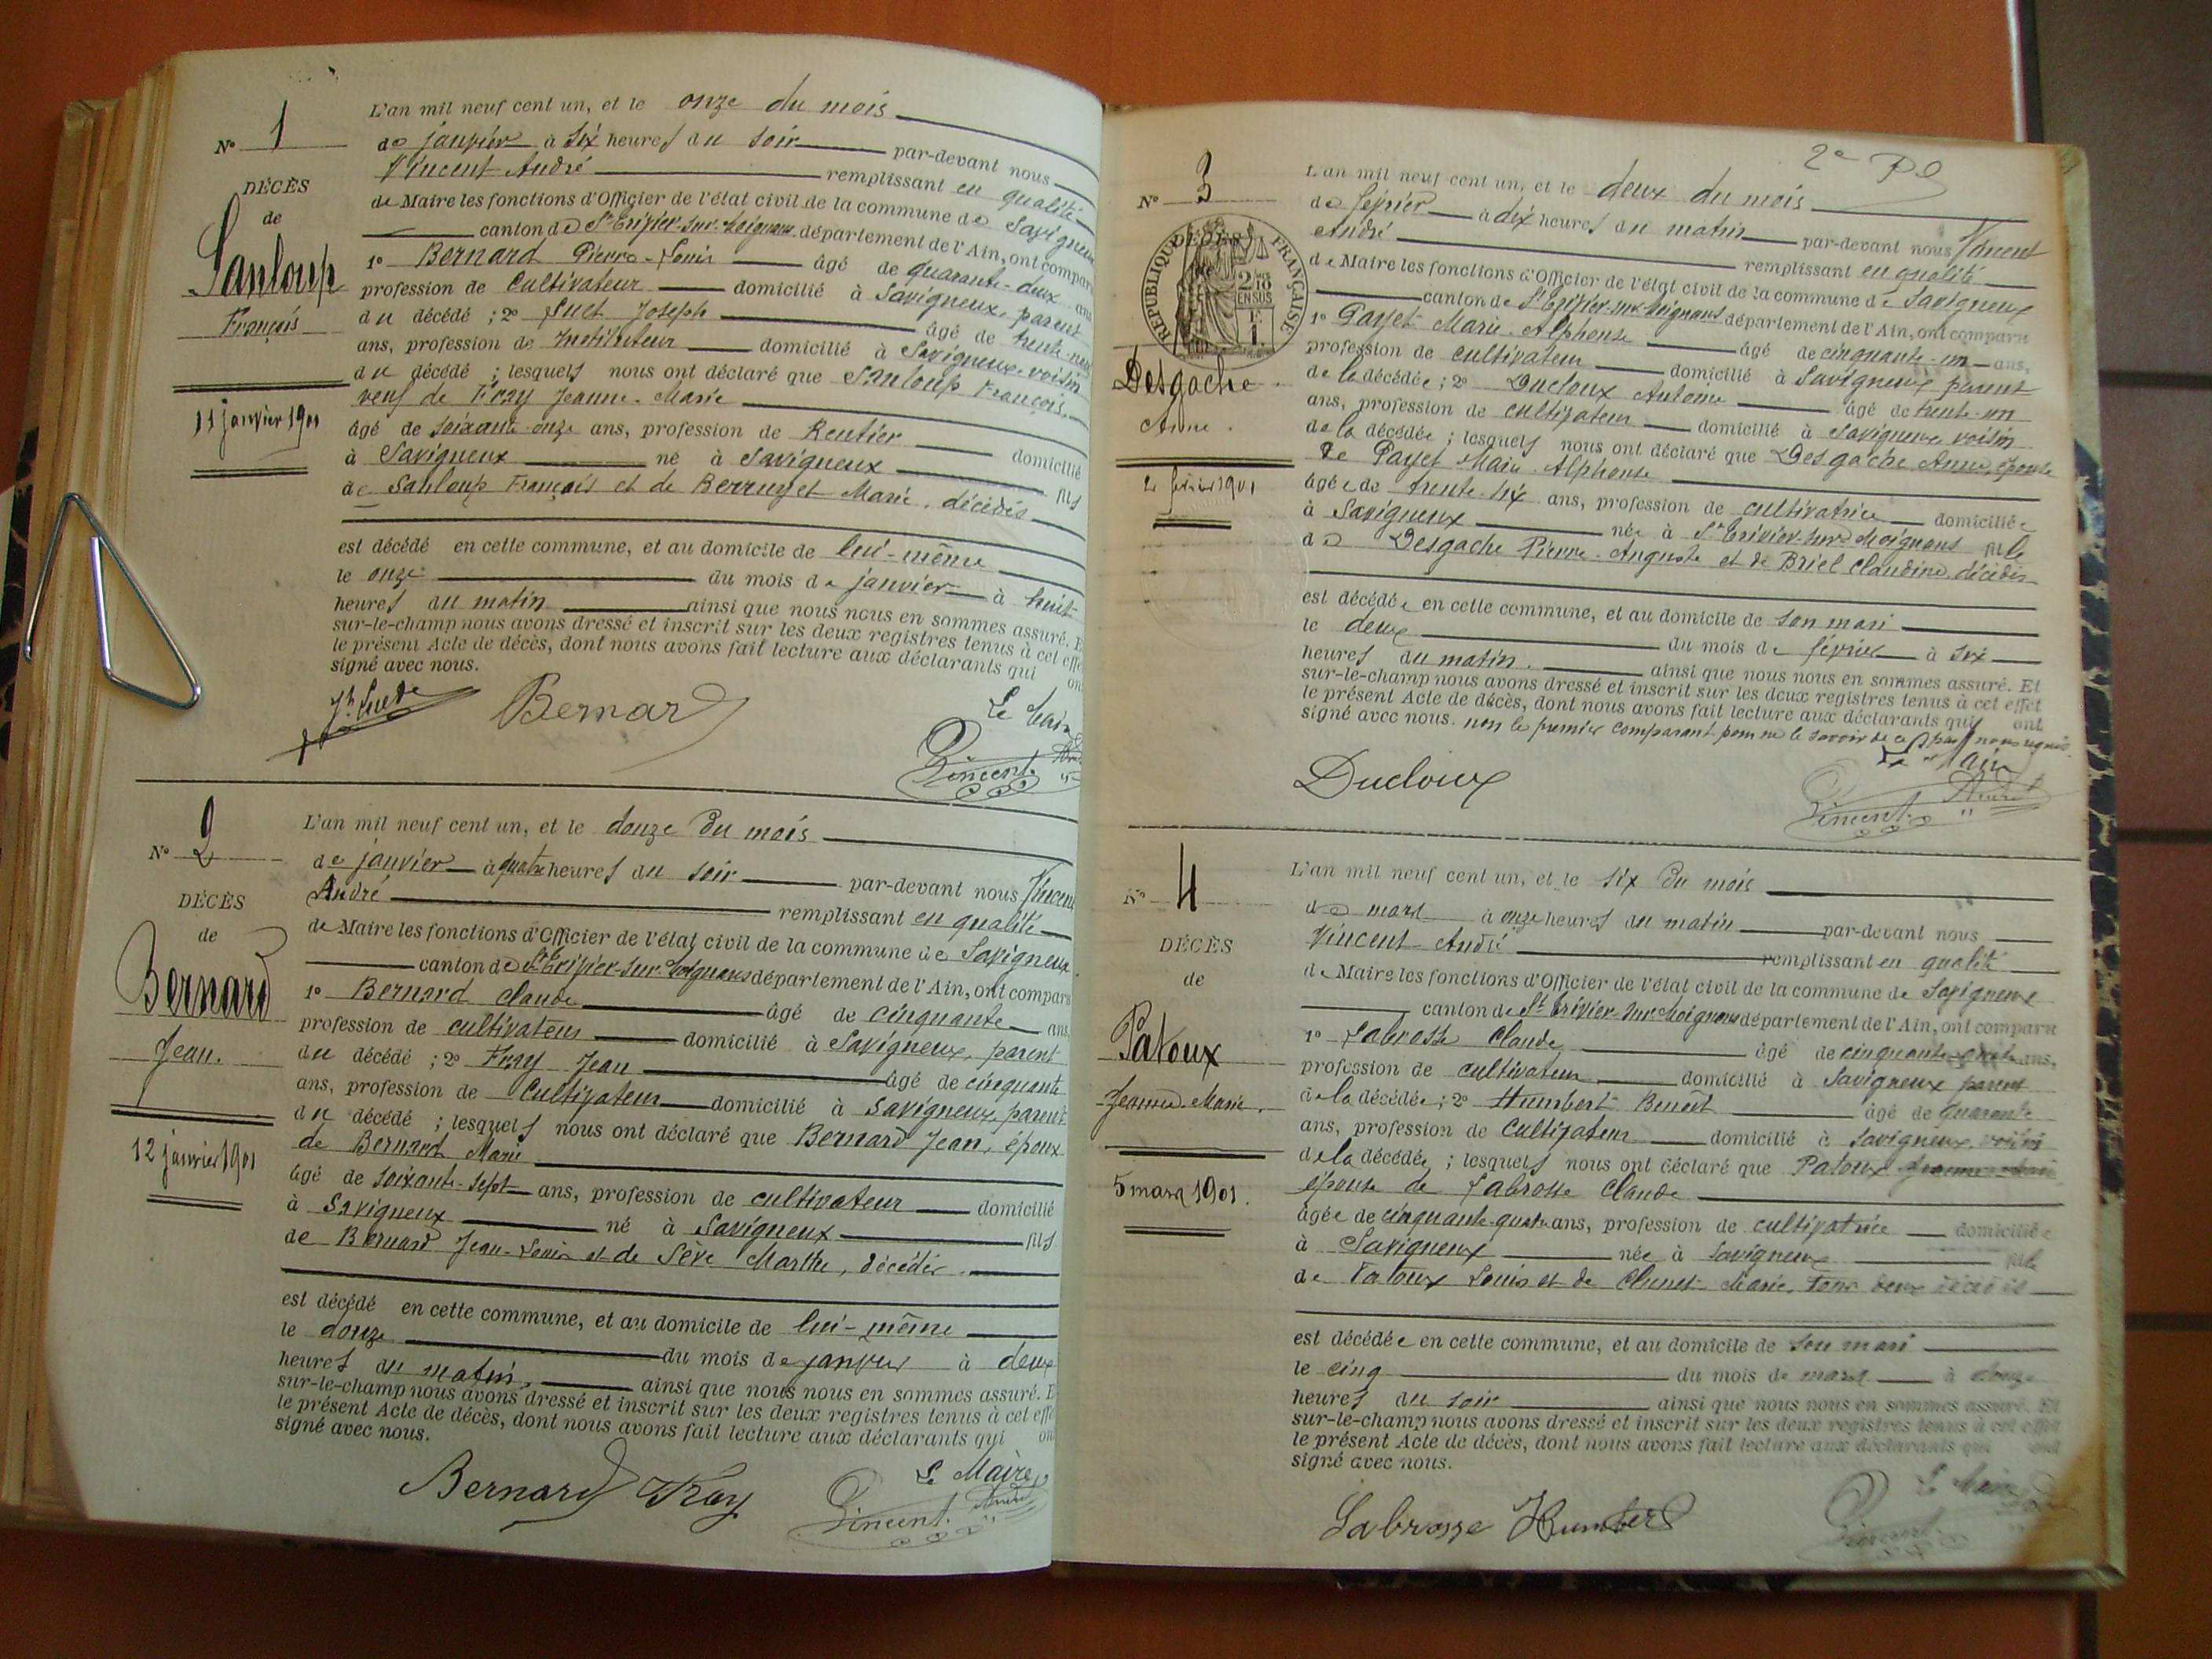 N° 1
DÉCÈS
de
Sanloup
François
11 janvier 1901
L'an mil neuf cent un, et le onze du mois
de janvier à six heures du soir par-devant nous
Vincent André remplissant en qualité
de Maire les fonctions d'Officier de l'état civil de la commune de Savigneux
canton de St Trivier-sur-Moignans département de l'Ain, ont comparu
1° Bernard Pierre-Louis âgé de quarante-deux ans
profession de cultivateur domicilié à Savigneux, parent
du décédé ; 2° Suet Joseph âgé de trente-neuf
ans, profession de Instituteur domicilié à Savigneux voisin
du décédé ; lesquels nous ont déclaré que Sanloup François,
veuf de Fray Jeanne-Marie
âgé de soixante-onze ans, profession de Rentier domicilié
à Savigneux né à Savigneux fils
de Sanloup François et de Berruyet Marie, décédés
est décédé en cette commune, et au domicile de lui-même
le onze du mois de janvier à huit
heures du matin ainsi que nous nous en sommes assuré. E
sur-le-champ nous avons dressé et inscrit sur les deux registres tenus à cet effe
le présent Acte de décès, dont nous avons fait lecture aux déclarants qui on
signé avec nous.
Bernard
Le Maire
Vincent
N° 2
DÉCÈS
de
Bernard
Jean.
12 janvier 1901
L'an mil neuf cent un, et le douze du mois
de janvier à quatre heures du soir par-devant nous Vincent
André remplissant en qualité
de Maire les fonctions d'Officier de l'état civil de la commune de Savigneux
canton de St Trivier-sur-Moignans département de l'Ain, ont comparu
1° Bernard Claude âgé de cinquante ans
profession de cultivateur domicilié à Savigneux, parent
du décédé ; 2° Fray Jean âgé de cinquante
ans, profession de Cultivateur domicilié à Savigneux, parent
du décédé ; lesquels nous ont déclaré que Bernard Jean, époux
de Bernard Marie
âgé de soixante-sept ans, profession de cultivateur domicilié
à Savigneux né à Savigneux fils
de Bernard Jean-Louis et de Sève Marthe, décédés
est décédé en cette commune, et au domicile de lui-même
le douze du mois de janvier à deux
heures du matin, ainsi que nous nous en sommes assuré. E
sur-le-champ nous avons dressé et inscrit sur les deux registres tenus à cet effe
le présent Acte de décès, dont nous avons fait lecture aux déclarants qui on
signé avec nous.
Bernard Fray
Le Maire
Vincent André
2e
N° 3
RÉPUBLIQUE FRANÇAISE
2/10 EN SUS
Desgache
Anne.
2 février 1901
L'an mil neuf cent un, et le deux du mois
de février à dix heures du matin par-devant nous Vincent
André remplissant en qualité
de Maire les fonctions d'Officier de l'état civil de la commune de Savigneux
canton de St Trivier-sur-Moignans département de l'Ain, ont comparu
1° Payet Marie-Alphonse âgé de cinquante-un ans,
profession de cultivateur domicilié à Savigneux parent
de la décédée ; 2° Ducloux Antoine âgé de trente-un
ans, profession de cultivateur domicilié à Savigneux voisin
de la décédée ; lesquels nous ont déclaré que Desgache Anne, épouse
de Payet Marie-Alphonse
âgée de trente-six ans, profession de cultivatrice domiciliée
à Savigneux née à St Trivier-sur-Moignans fille
de Desgache Pierre-Auguste et de Briel Claudine, décédés
est décédée en cette commune, et au domicile de son mari
le deux du mois de février à six
heures du matin. ainsi que nous nous en sommes assuré. Et
sur-le-champ nous avons dressé et inscrit sur les deux registres tenus à cet effet
le présent Acte de décès, dont nous avons fait lecture aux déclarants qui ont
signé avec nous. non le premier comparant pour ne le savoir de ce par nous requis
Le Maire
Ducloux
Vincent André
N° 4
DÉCÈS
de
Patoux
Jeanne-Marie.
5 mars 1901.
L'an mil neuf cent un, et le six du mois
de mars à onze heures du matin par-devant nous
Vincent André remplissant en qualité
de Maire les fonctions d'Officier de l'état civil de la commune de Savigneux
canton de St Trivier-sur-Moignans département de l'Ain, ont comparu
1° Labrosse Claude âgé de cinquante-quatre ans,
profession de cultivateur domicilié à Savigneux parent
de la décédée ; 2° Humbert Benoît âgé de quarante
ans, profession de Cultivateur domicilié à Savigneux voisin
de la décédée ; lesquels nous ont déclaré que Patoux Jeanne-Marie
épouse de Labrosse Claude
âgée de cinquante-quatre ans, profession de cultivatrice domiciliée
à Savigneux née à Savigneux fille
de Patoux Louis et de Clunet Marie, tous deux décédés
est décédée en cette commune, et au domicile de son mari
le cinq du mois de mars à onze
heures du soir ainsi que nous nous en sommes assuré. Et
sur-le-champ nous avons dressé et inscrit sur les deux registres tenus à cet effet
le présent Acte de décès, dont nous avons fait lecture aux déclarants qui ont
signé avec nous.
Le Maire
Labrosse Humbert
Vincent